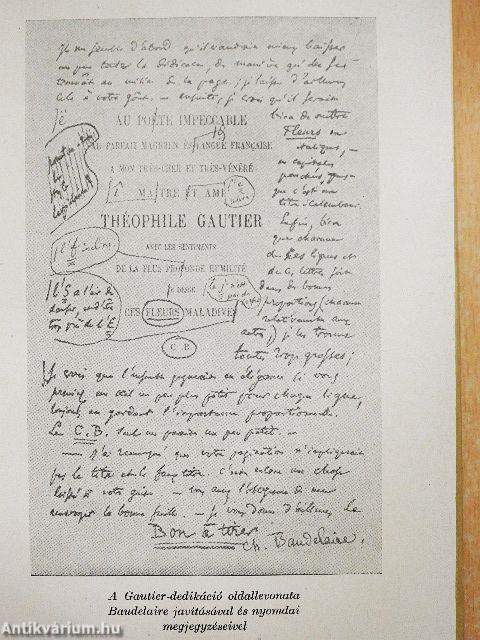 Il me semble d'abord qu'il vaudrait mieux baisser
un peu toute la dédicace, de manière qu'elle se
trouvât au milieu de la page; je laisse d'ailleurs
cela à votre goût. — ensuite, je crois qu'il serait
bien de mettre
Fleurs en
italiques, —
en capitales
penchées, puis-
que c'est un
titre-calembour.
Enfin, bien
que chacune
de ces lignes et
de ces lettres soit
dans de bonnes
proportions (chacune
relativement aux
autres) je les trouve
toutes trop grosses;
AU POËTE IMPECCABLE
AU PARFAIT MAGICIEN ÈS LANGUE FRANÇAISE
A MON TRÈS-CHER ET TRÈS-VÉNÉRÉ
MAITRE ET AMI
THÉOPHILE GAUTIER
AVEC LES SENTIMENTS
DE LA PLUS PROFONDE HUMILITÉ
JE DÉDIE
CES FLEURS MALADIVES
C. B.
Je crois que l'ensemble gagnerait en élégance si vous
preniez un œil un peu plus petit pour chaque ligne,
toujours en gardant l'importance proportionnelle.
Le C. B. seul me paraît un peu petit. —
— J'ai remarqué que votre pagination n'impliquait
pas le titre et le faux titre. c'est encore une chose
laissée à votre goût. —
renvoyer la bonne feuille. — Je vous donne d'ailleurs le
Bon à tirer
Ch. Baudelaire.
A Gautier-dedikáció oldallevonata
Baudelaire javításával és nyomdai
megjegyzéseivel
Antikvárium.hu